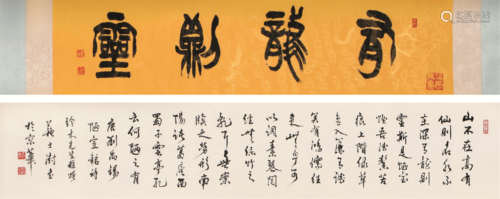 有龍則靈
山不在高有
仙則名水不
在深有龍則
靈斯是陋室
惟吾德馨苔
痕上階綠草
色入簾青談
笑有鴻儒往
來無白丁可
以調素琴閱
金經無絲竹之
亂耳無案
牘之勞形南
陽諸葛廬西
蜀子雲亭孔
云何陋之有
唐劉禹錫
陋室銘詩
先生雅
書
於京華